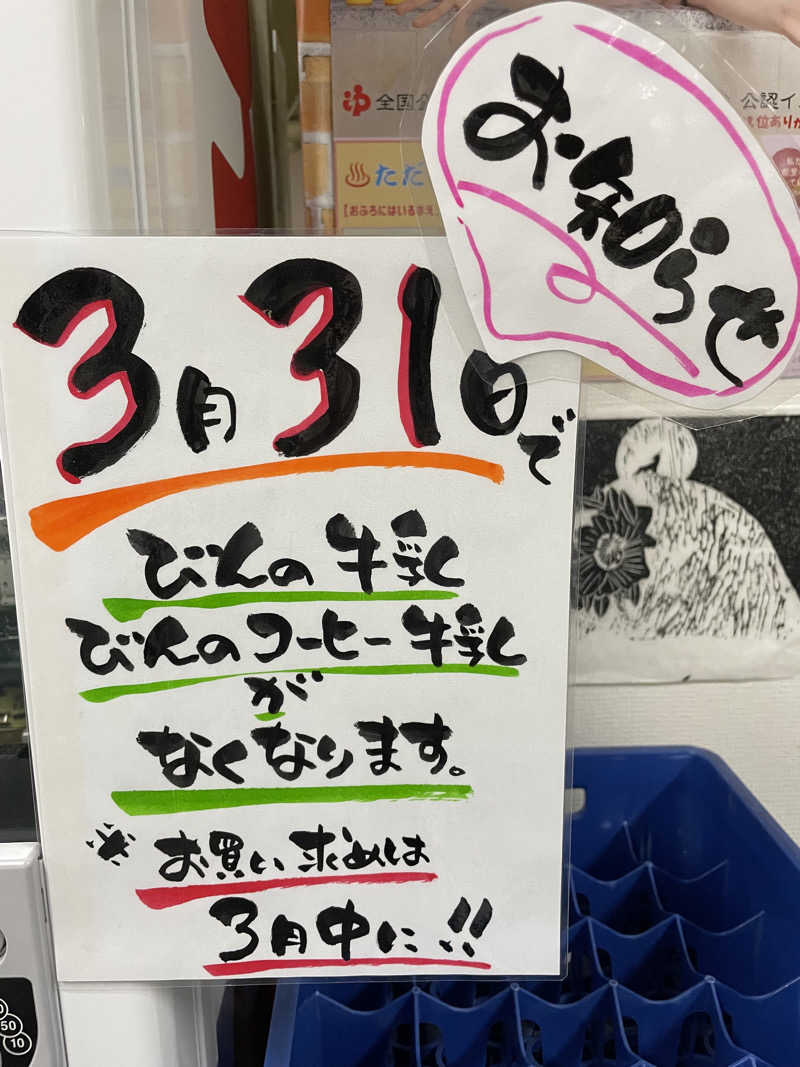 全国公
公認イ
ただ
【おふろにはいるまえ
お知らせ
3月31日で
びんの牛乳
びんのコーヒー牛乳
が
なくなります。
※お買い求めは
3月中に!!
50
10